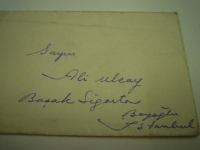 Sayın
Ali Ulcay
Başak Sigorta
Beyoğlu
İstanbul